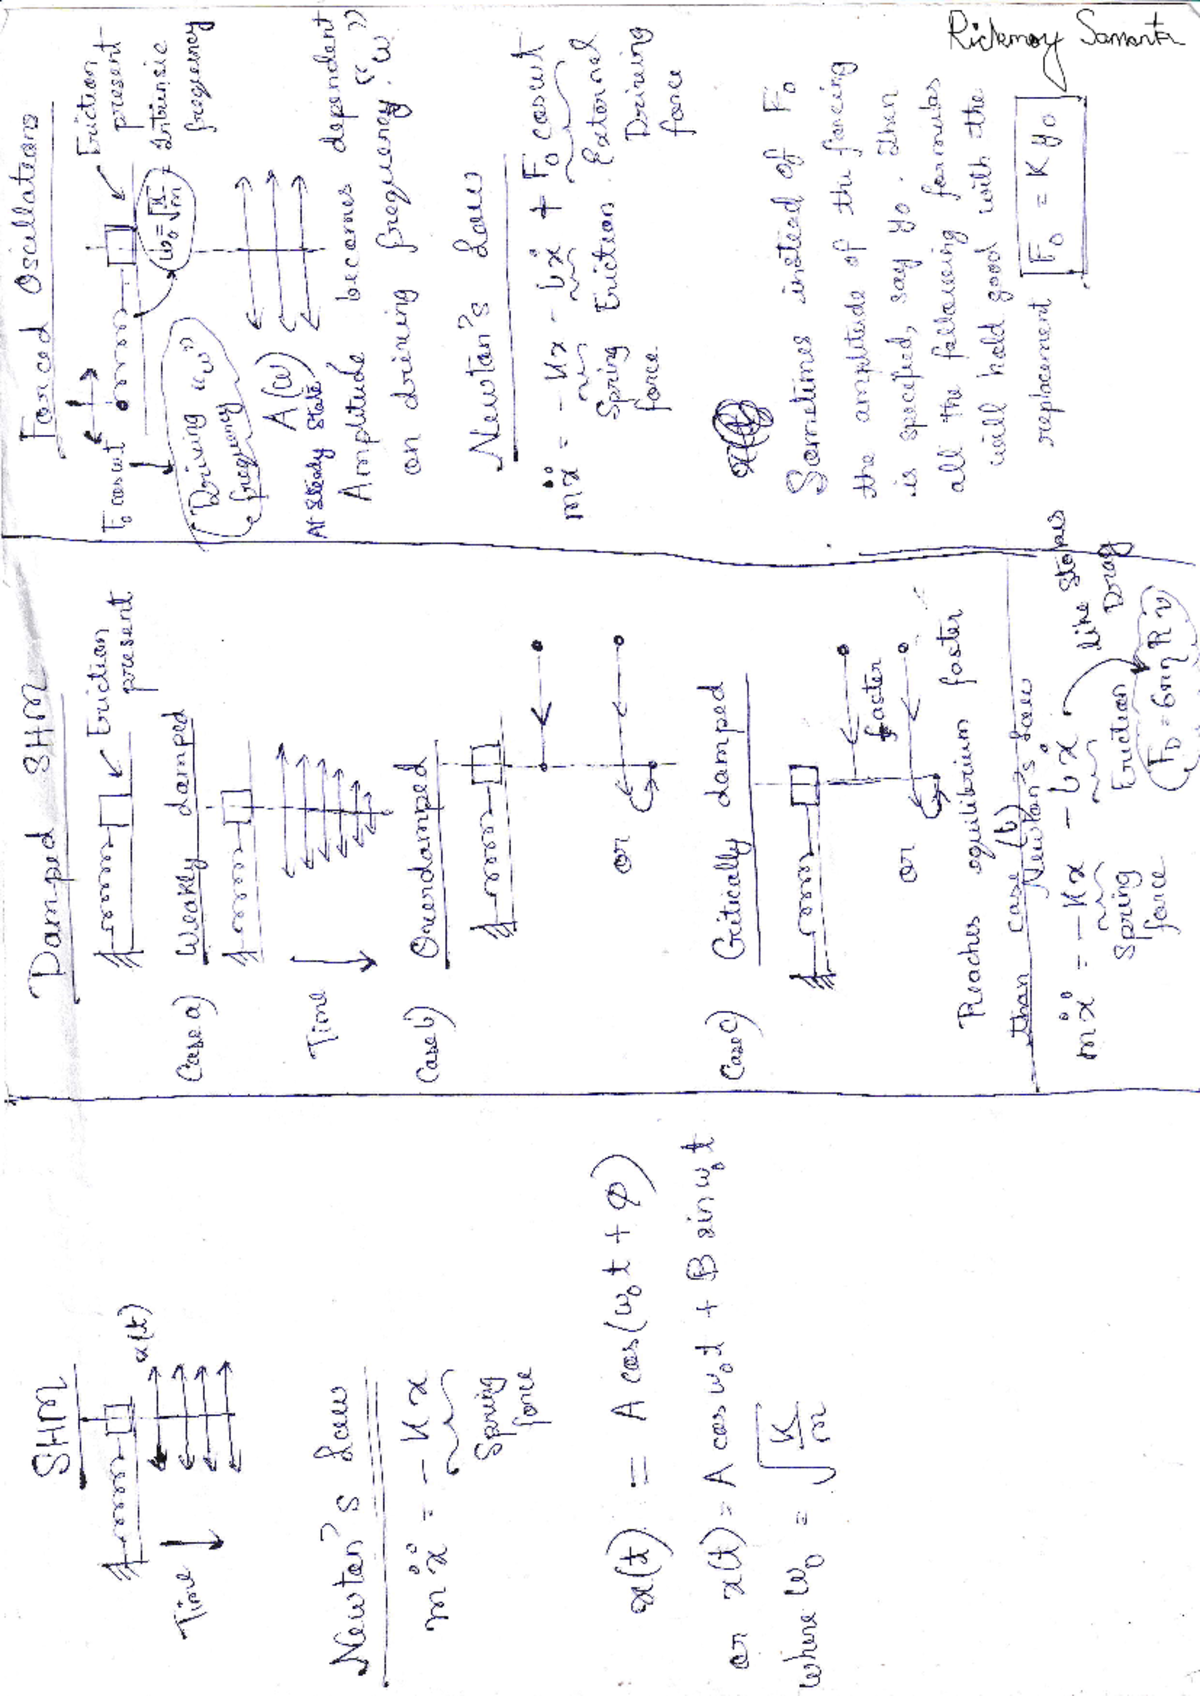 SHM
x(t)
Time
Newton's Law
mẍ = - Kx
Spring
force
x(t) = A cos(ω₀t + φ)
or x(t) = A cos ω₀t + B sin ω₀t
where ω₀ = √(K/m)
Damped SHM
Friction
present
Case a) Weakly damped
Time
Case b) Overdamped
or
Case c) Critically damped
faster
or
Reaches equilibrium faster
than case (b)
Newton's Law
mẍ = - Kx - bẋ
Spring
force
Friction
like Stokes
Drag
F_D = 6πηRv
Forced Oscillations
F₀ cosωt
Friction
present
ω₀ = √(K/m)
Intrinsic
frequency
Driving "ω"
frequency
A(ω)
At steady state
Amplitude becomes dependent
on driving frequency "ω"
Newton's Law
mẍ = - Kx - bẋ + F₀ cosωt
Spring
force
Friction
External
Driving
force
Sometimes instead of F₀
the amplitude of the forcing
is specified, say y₀. Then
all the following formulas
will hold good with the
replacement F₀ = K y₀
Rickmoy Samanta